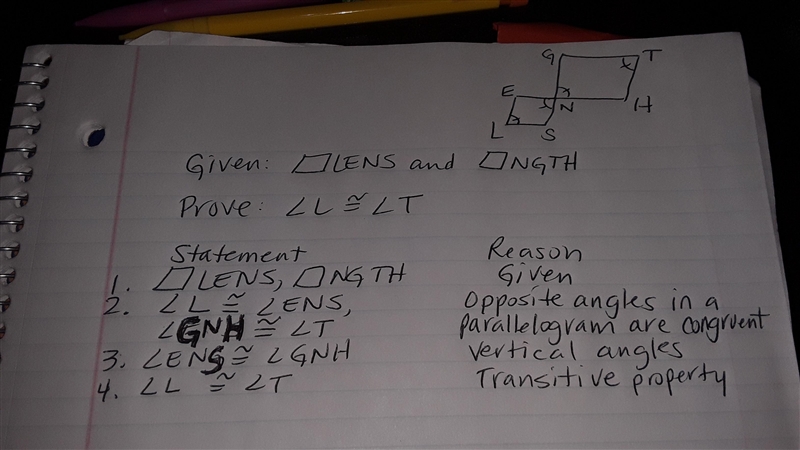 G T
E N H
L S
Given: ▱LENS and ▱NGTH
Prove: ∠L ≅ ∠T
Statement Reason
1. ▱LENS, ▱NGTH Given
2. ∠L ≅ ∠ENS, Opposite angles in a
∠GNH ≅ ∠T parallelogram are congruent
3. ∠ENS ≅ ∠GNH vertical angles
4. ∠L ≅ ∠T Transitive property